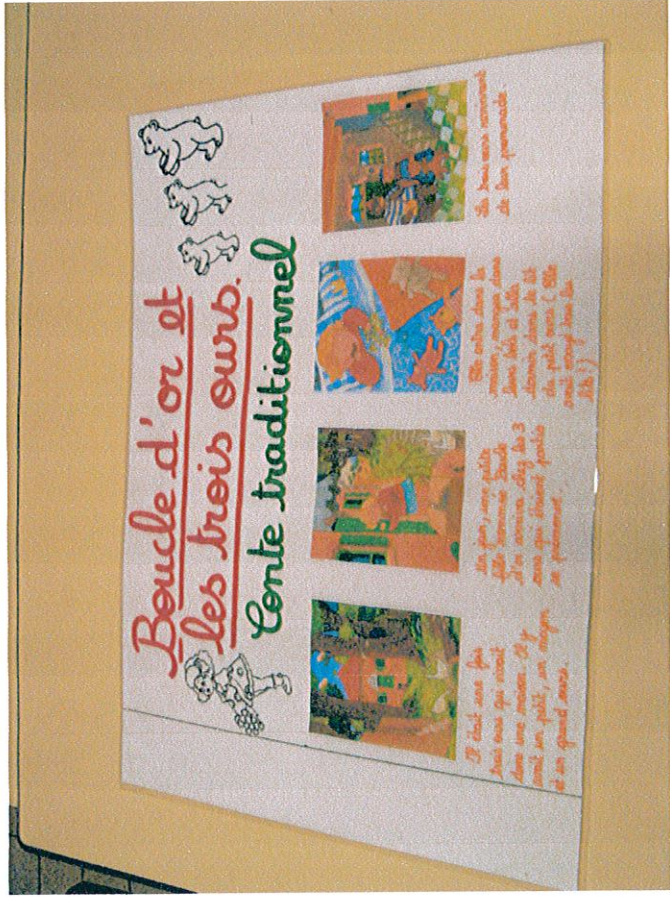 Boucle d'or et
les trois ours.
Conte traditionnel
Il était une fois
trois ours qui vivait
dans une maison. Il y
avait un petit, un moyen
et un grand ours.
Un jour, une petite
fille nommée Boucle
d'or arriva chez les 3
ours qui étaient partis
se promener.
Elle entra dans la
maison, mangea dans
leurs bols et alla
dormir dans le lit
du petit ours (Elle
avait essayé tous les
lits !)
Les trois ours revinrent
de leur promenade.